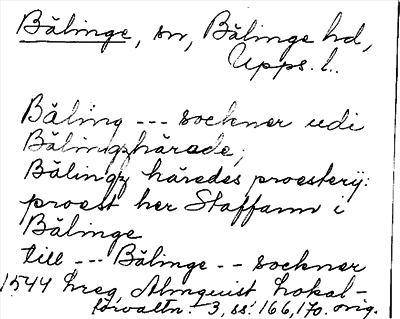 Bälinge, sn, Bälinge hd,
Upps. l.
Bäling --- sockner udi
Bälingzhärade;
Bälingz häredes proesterij:
proest her Staffann i
Bälinge
till --- Bälinge -- sockner
1544 hreg, Almquist Lokal-
förvaltn. 3, ss. 166, 170. orig.